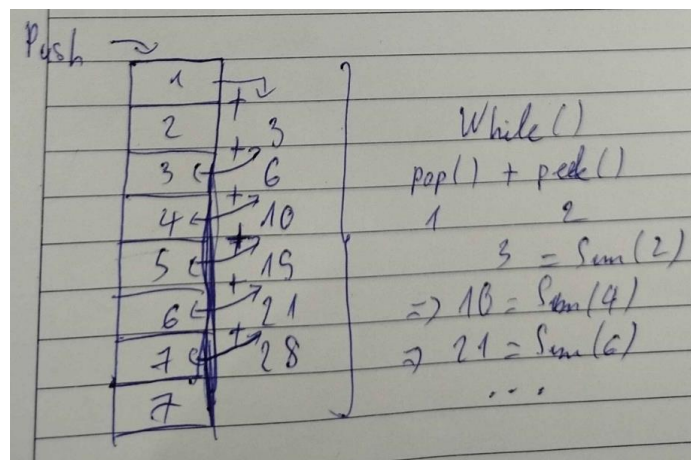 Push
1
+
2 3
+
3 6
+
4 10
+
5 15
+
6 21
+
7 28
7
While()
pop() + peek()
1 2
3 = Sum(2)
=> 10 = Sum(4)
=> 21 = Sum(6)
...